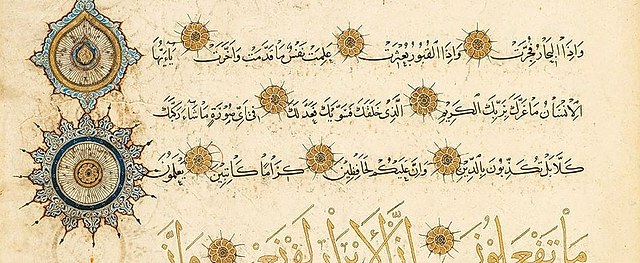 وَإِذَا الْبِحَارُ فُجِّرَتْ وَإِذَا الْقُبُورُ بُعْثِرَتْ عَلِمَتْ نَفْسٌ مَا قَدَّمَتْ وَأَخَّرَتْ يَٰٓأَيُّهَا
الْإِنْسَانُ مَا غَرَّكَ بِرَبِّكَ الْكَرِيمِ الَّذِي خَلَقَكَ فَسَوَّيكَ فَعَدَلَكَ فِي أَيِّ صُورَةٍ مَا شَاءَ رَكَّبَكَ
كَلَّا بَلْ تُكَذِّبُونَ بِالدِّينِ وَإِنَّ عَلَيْكُمْ لَحَافِظِينَ كِرَامًا كَاتِبِينَ يَعْلَمُونَ
مَا تَفْعَلُونَ إِنَّ الْأَبْرَارَ لَفِي نَعِيمٍ وَإِنَّ